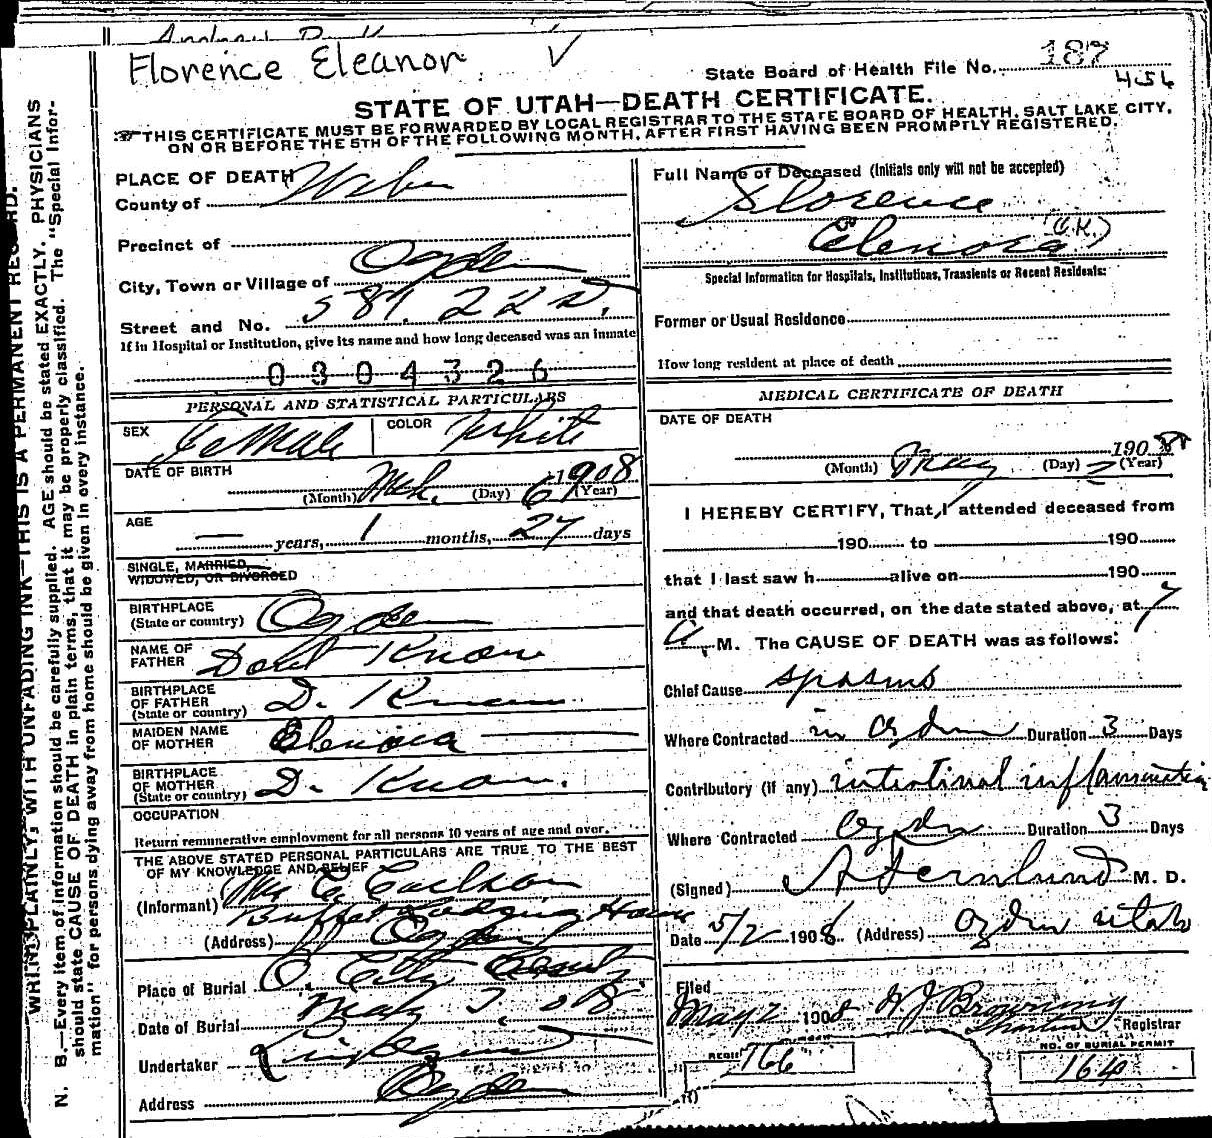 Florence Eleanor
State Board of Health File No. 187
456
STATE OF UTAH—DEATH CERTIFICATE.
THIS CERTIFICATE MUST BE FORWARDED BY LOCAL REGISTRAR TO THE STATE BOARD OF HEALTH, SALT LAKE CITY,
ON OR BEFORE THE 5TH OF THE FOLLOWING MONTH, AFTER FIRST HAVING BEEN PROMPTLY REGISTERED.
PLACE OF DEATH
County of Weber
Precinct of
City, Town or Village of Ogden
Street and No. 587. 22 
If in Hospital or Institution, give its name and how long deceased was an inmate
0304326
PERSONAL AND STATISTICAL PARTICULARS
SEX Female COLOR White
DATE OF BIRTH
Mch. 6 1908
(Month) (Day) (Year)
AGE
— years, 1 months, 27 days
SINGLE, MARRIED,
WIDOWED, OR DIVORCED
BIRTHPLACE
(State or country) Ogden
NAME OF
FATHER Dont Know
BIRTHPLACE
OF FATHER
(State or country) D. Know
MAIDEN NAME
OF MOTHER Elenora
BIRTHPLACE
OF MOTHER
(State or country) D. Know.
OCCUPATION
Return remunerative employment for all persons 10 years of age and over.
THE ABOVE STATED PERSONAL PARTICULARS ARE TRUE TO THE BEST
OF MY KNOWLEDGE AND BELIEF
(Informant) Carlson
Buffet Lodging House
(Address) Ogden
Place of Burial O. City
Date of Burial May 2, 08
Undertaker Lindquist
Address Ogden
Full Name of Deceased (Initials only will not be accepted)
Florence
Elenora (O.K.)
Special Information for Hospitals, Institutions, Transients or Recent Residents:
Former or Usual Residence
How long resident at place of death
MEDICAL CERTIFICATE OF DEATH
DATE OF DEATH
May 2 1908
(Month) (Day) (Year)
I HEREBY CERTIFY, That I attended deceased from
190 to 190
that I last saw h alive on 190
and that death occurred, on the date stated above, at 7
A. M. The CAUSE OF DEATH was as follows:
Chief Cause spasms
Where Contracted in Ogden Duration 3 Days
Contributory (if any) intestinal inflammation
Where Contracted Ogden Duration 3 Days
(Signed) A Fernlund M. D.
Date 5/2 1908 (Address) Ogden Utah
Filed
May 2 1908 Browning
Registrar
766
NO. OF BURIAL PERMIT
164
WRITE PLAINLY, WITH UNFADING INK—THIS IS A PERMANENT RECORD.
N. B.—Every item of information should be carefully supplied. AGE should be stated EXACTLY. PHYSICIANS
should state CAUSE OF DEATH in plain terms, that it may be properly classified. The "Special Infor-
mation" for persons dying away from home should be given in every instance.